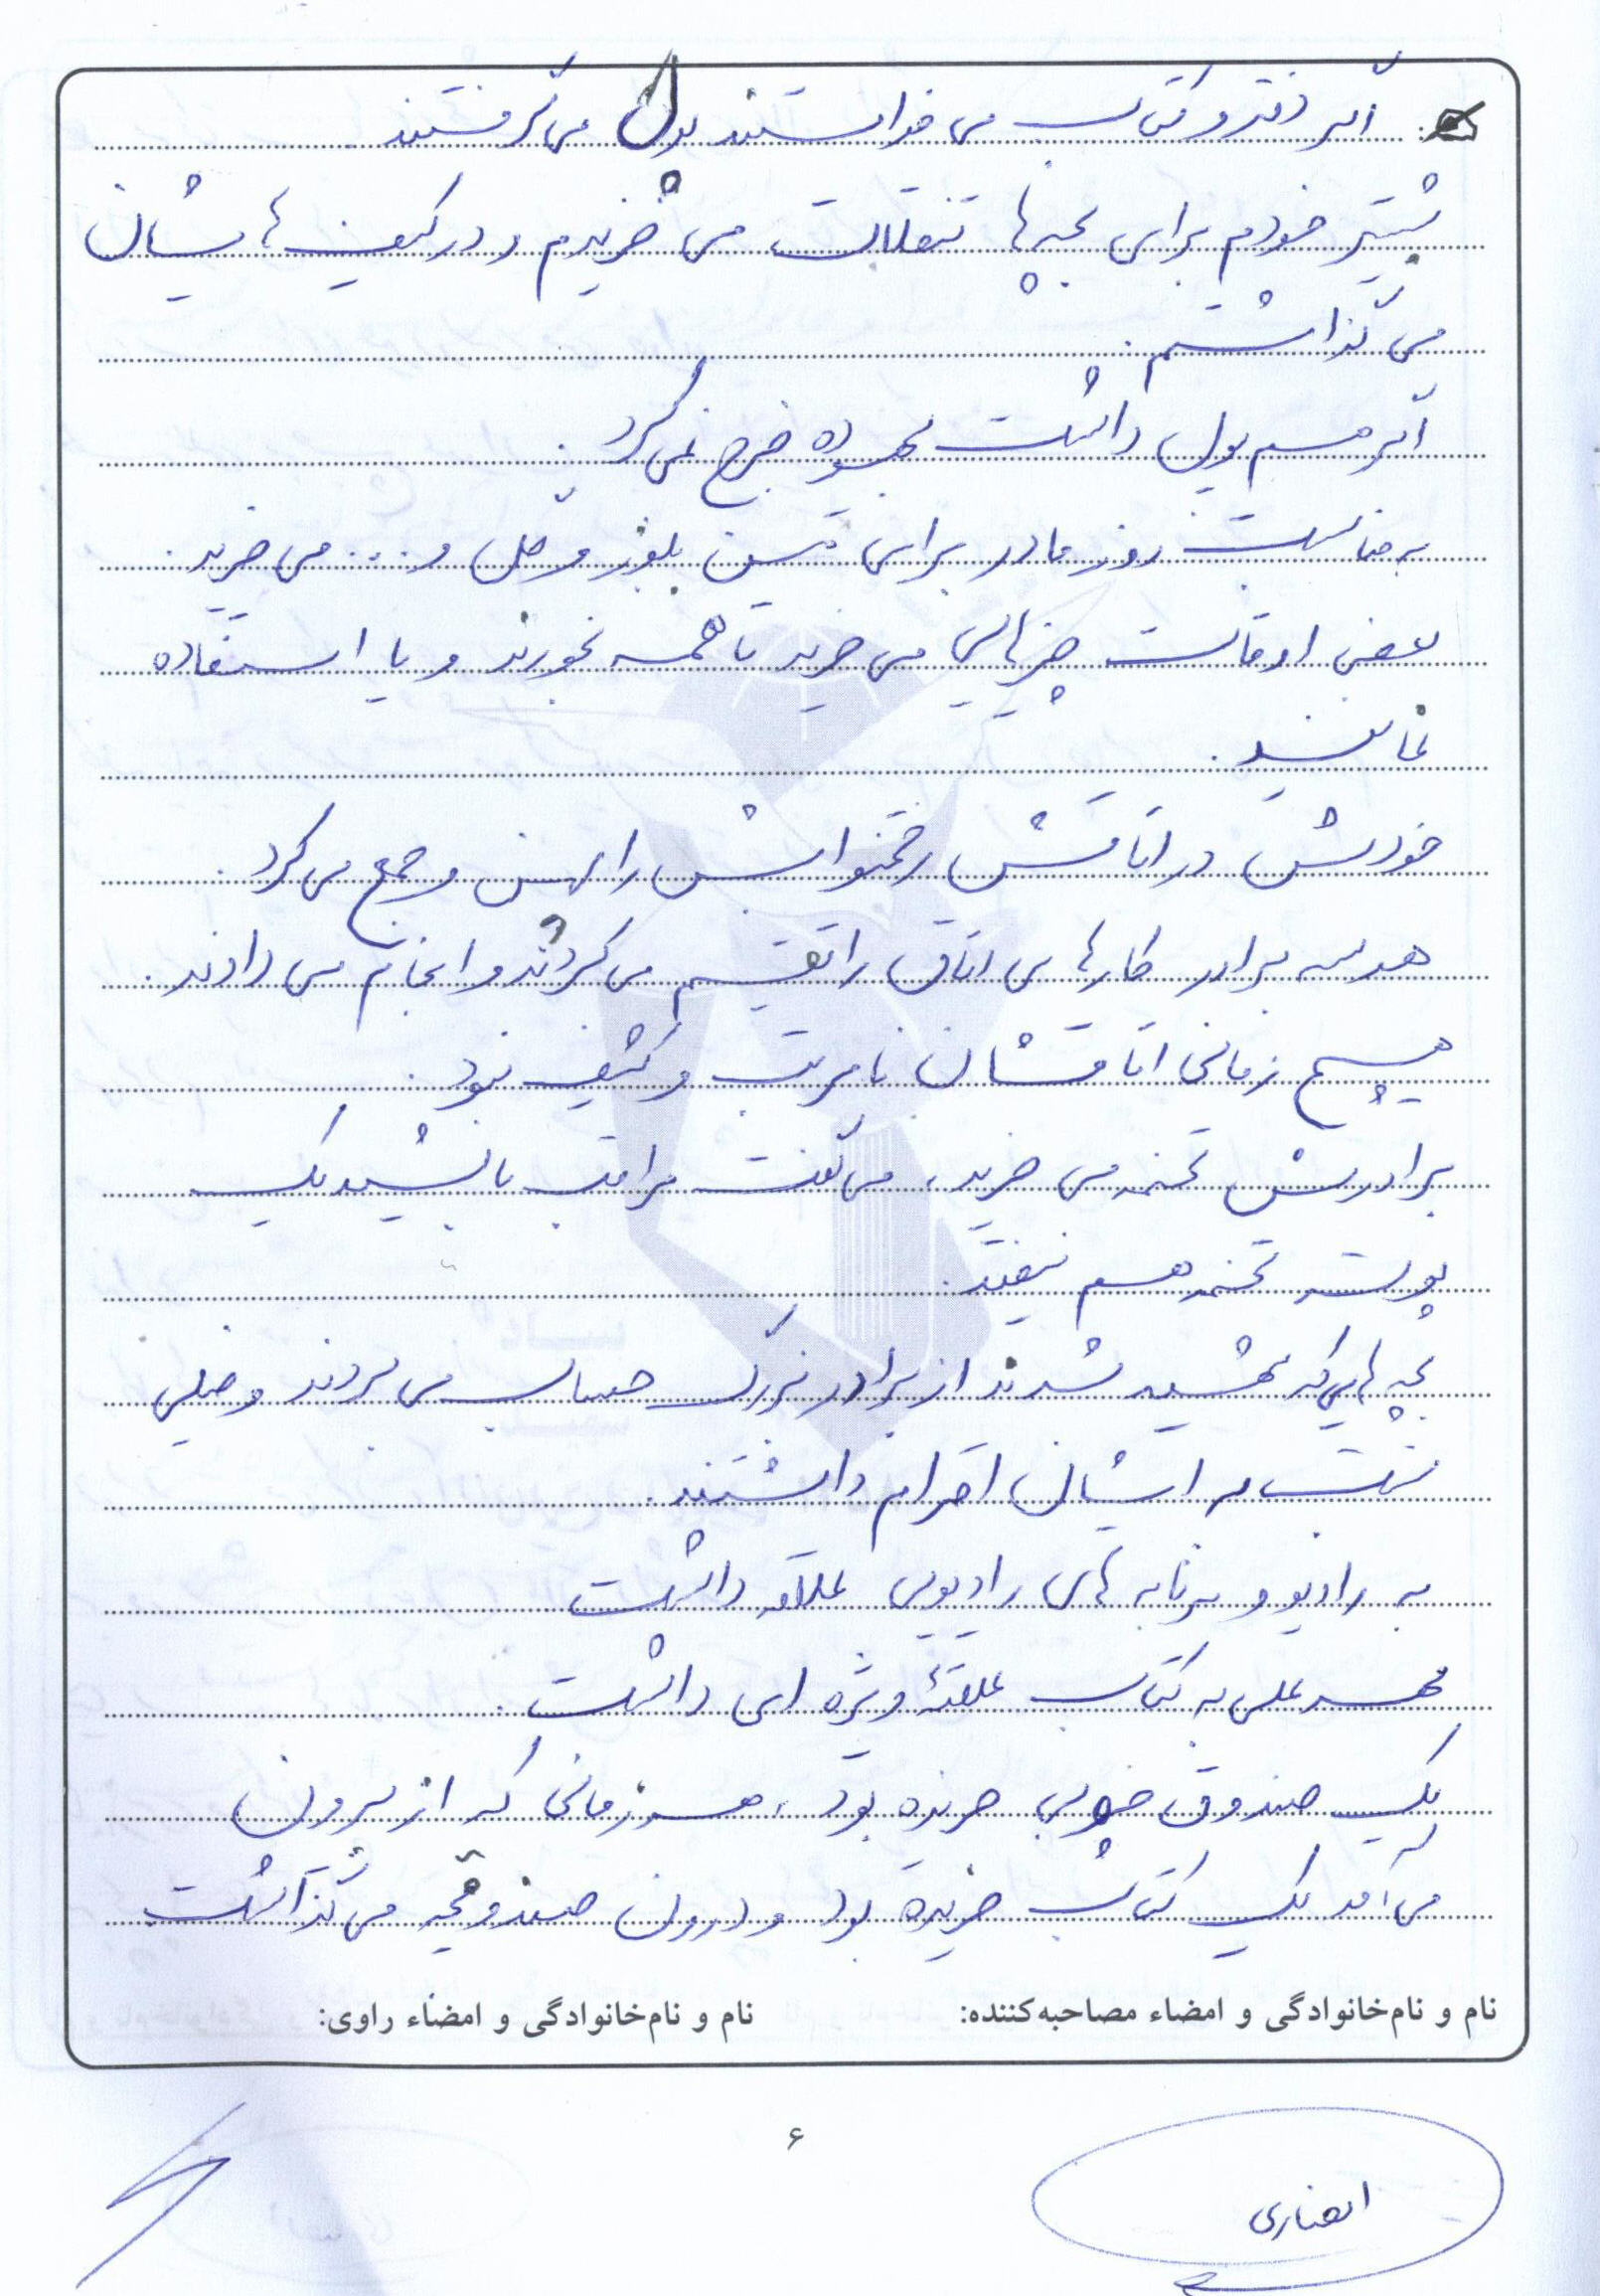 اگر دفتر و کتاب می خواستند پول می گرفتند
بیشتر خودم برای بچه ها تنقلات می خریدم و در کیف هایشان
می گذاشتم.
اگر هم پول داشت بیهوده خرج نمی کرد.
به مناسبت روز مادر برای من بلوز و گل و .... می خرید.
بعضی اوقات چیزهایی می خرید تا همه بخورند و یا استفاده
نمایند.
خودش در اتاقش رختخوابش را پهن و جمع می کرد.
هر سه برادر کارهای اتاق را تقسیم می کردند و انجام می دادند.
هیچ زمانی اتاقشان نامرتب و کثیف نبود.
برادرش تخمه می خرید، می گفت مراقب باشید یک
پوست تخمه هم نیفتد.
بچه هایی که شهید شدند از برادر بزرگ حساب می بردند و خیلی
نسبت به ایشان احترام داشتند.
به رادیو و برنامه های رادیویی علاقه داشت
محمد علی به کتاب علاقهٔ ویژه ای داشت.
یک صندوق چوبی خریده بود، هر زمانی که از بیرون
می آمد یک کتاب خریده بود و درون صندوقچه می گذاشت
نام و نام‌خانوادگی و امضاء مصاحبه‌کننده: نام و نام‌خانوادگی و امضاء راوی:
۶
انصاری